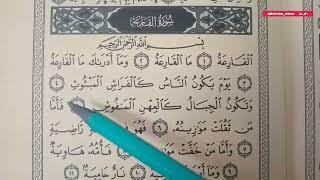 سُورَةُ القَارِعَةِ
بِسْمِ اللَّهِ الرَّحْمَٰنِ الرَّحِيمِ
الْقَارِعَةُ ١ مَا الْقَارِعَةُ ٢ وَمَا أَدْرَىٰكَ مَا الْقَارِعَةُ
٣ يَوْمَ يَكُونُ النَّاسُ كَالْفَرَاشِ الْمَبْثُوثِ ٤
وَتَكُونُ الْجِبَالُ كَالْعِهْنِ الْمَنفُوشِ فَأَمَّا
مَن ثَقُلَتْ مَوَٰزِينُهُۥ ٦ فَهُوَ رَّاضِيَةٍ
وَأَمَّا مَنْ خَفَّتْ مَوَٰزِينُهُۥ فَأُمُّهُۥ هَاوِيَةٌ
نَارٌ حَامِيَةٌ ١١